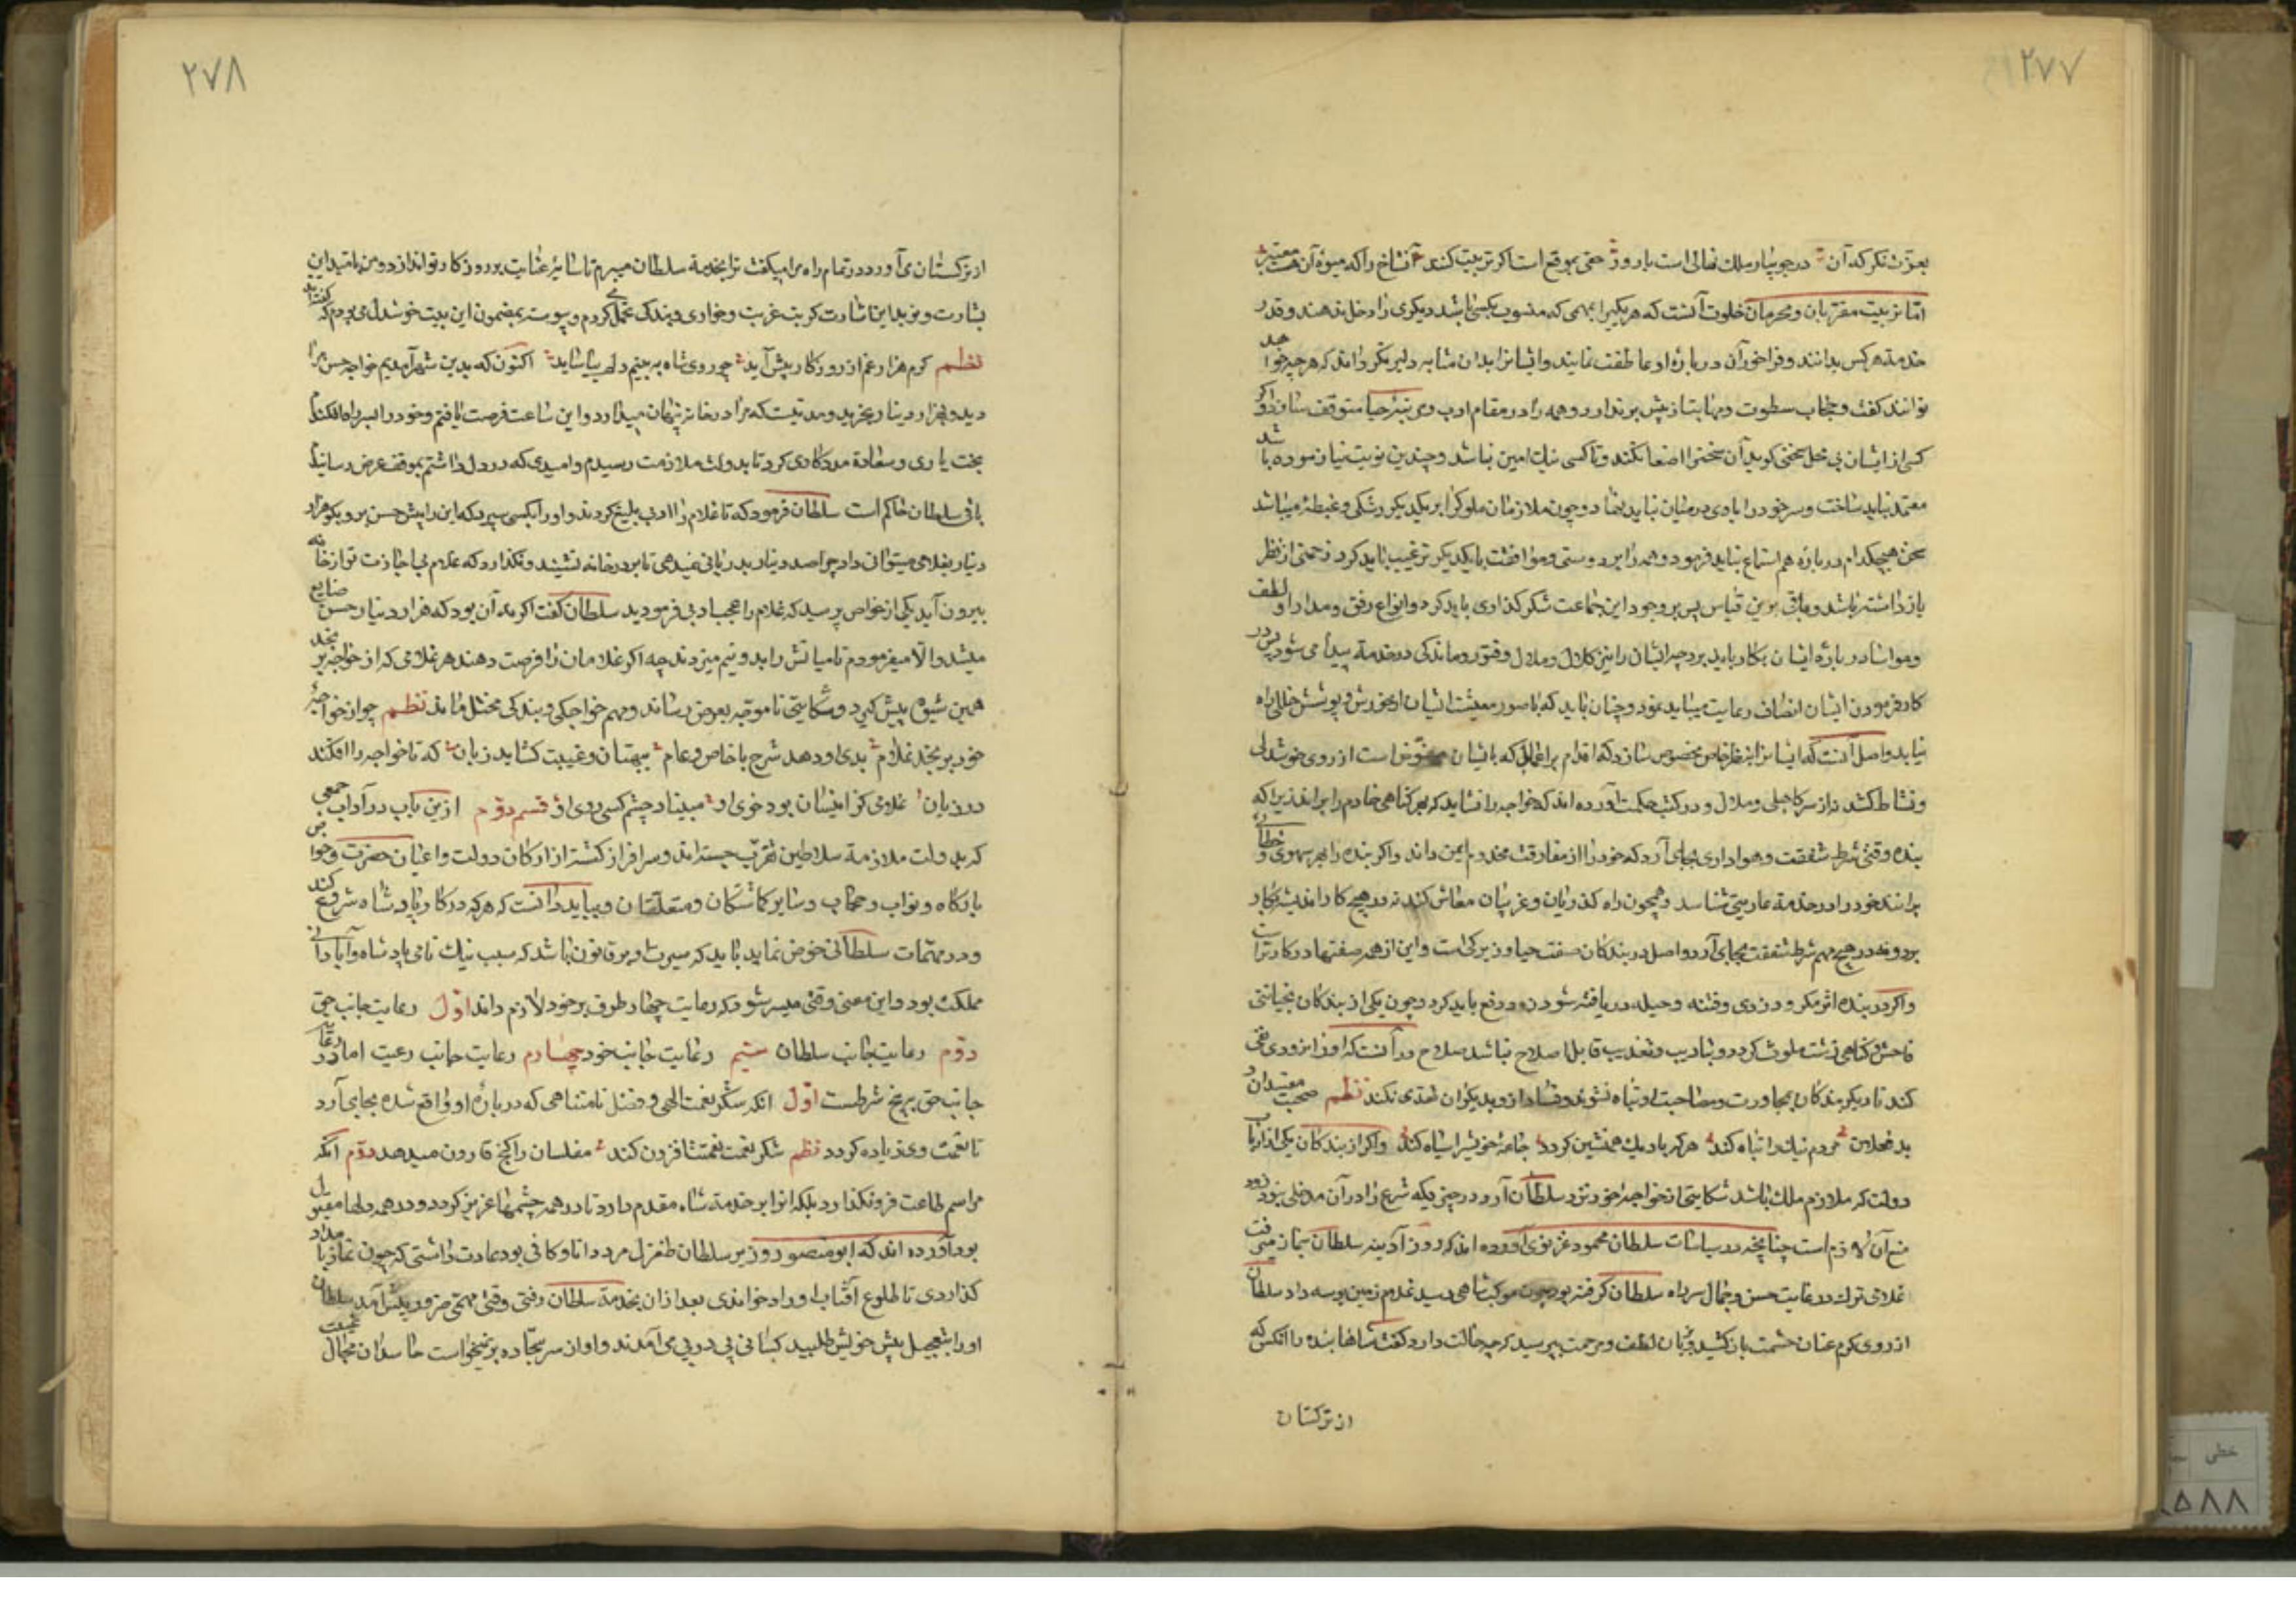 ۲۷۷
بعزّت نکر که آن در جویبار ملک نهالی است بارور حقی بموقع است اکر تربیت کنند آنشاخ را که میوهٔ آن هست معتبر
امّا تربیت مقرّبان و محرمان خلوت آنست که هر یکیرا بمهمی که منسوب بکسی باشد دیکری را دخل ندهند و قدر
خدمت هر کس بدانند و فراخور آن دربارهٔ او عاطفت نمایند و ایشانرا بدان مثابه دلیر نکردانند که هر چه خواهند
توانند کفت و حجاب سطوت و مهابت از پیش برندارد و همه را در مقام ادب و مرتبهٔ حیا متوقف سازد و اکر
کسی از ایشان بی محل سخنی کوید آن سخنرا اصغا نکند و تا کسی نیک امین نباشد و چندین نوبت نیازموده باشد
معتمد نباید ساخت و سر خود را با وی در میان نباید نهاد و چون ملازمان ملوکرا بر یکدیکر رشکی و غبطهٔ میباشد
سخن هیچکدام در بارهٔ هم استماع نباید فرمود و همه را بر دوستی و موافقت با یکدیکر ترغیب باید کرد زحمتی از نظر
بازداشته باشد و مابقی برین قیاس پس بر وجود این جماعت شکر کذاری باید کرد و انواع رفق و مدارا و لطف
و مواسا در بارهٔ ایشان بکار باید برد چه ایشان را نیز کلال و ملال و فتور و ماندکی در خدمت پیدا می شود پس در
کار فرمودن ایشان انصاف رعایت میباید نمود و چنان باید که با صور معیشت ایشان از خورش و پوشش خللی راه
نیابد و اصل آنست که ایشانرا بنظر خاص مخصوص سازد که اقدام بر اعمالی که بایشان مفوّض است از روی خوشدلی
و نشاط کنند نه از سر کاهلی و ملال و در کتب حکمت آورده اند که خواجه را نشاید که بهر کناهی خادم را براند زیرا که
بنده وقتی شرط شفقت و هواداری بجای آرد که خود را از مفارقت مخدوم ایمن داند و اکر بنده را بهر سهوی و خطائی
برانند خود را در خدمت عاریتی شناسد و همچون راه کذریان و غریبان معاش کند نه در هیچ کار اندیشه بکار
برد و نه در هیچ مهم شرط شفقت بجای آرد و اصل در بندکان صفت حیا و زیرکی است و این از همه صفتها در کارتر است
و اکر در بنده اثر مکر و دزدی و فتنه و حیله دریافته شود زود دفع باید کرد و چون یکی از بندکان بخیانتی
فاحش و کناهی زشت ملوث کردد و بتادیب و تعذیب قابل اصلاح نباشد صلاح در آنست که او را بزودی نفی
کند تا دیکر بندکان بمجاورت و مصاحبت او تباه نشوند و فساد او بدیکران تعدّی نکند نظم صحبت مفسدان و
بد فعلان مردم نیک را تباه کند هر که با دیک همنشین کردد جامهٔ خویشرا سیاه کند و اکر از بندکان یکی از ارباب
دولت که ملازم ملک باشد شکایتی از خواجهٔ خود نزد سلطان آرد در چیزیکه شرع را در آن مدخلی نبود زود
منع آن لازم است چنانچه در سیاسات سلطان محمود غزنوی آورده اند که روز آدینه سلطان بنماز میرفت
غلامی ترک در غایت حسن و جمال سر راه سلطان کرفته بود چون موکب شاهی رسید غلام زمین بوسه داد سلطان
از روی کرم عنان حشمت باز کشید و بزبان لطف و مرحمت بپرسید که چه حالت دارد کفت شاها بنده را آنکس که
از ترکستان
۲۷۸
از ترکستان می آورد در تمام راه مرا میکفت ترا بخدمة سلطان میبرم تا سایهٔ عنایت بر روزکار تو اندازد و من بامید این
بشارت و نوید این اشارت کربت غربت و خواری و بندکی تحمل کردم و پیوسته بمضمون این بیت خوشدل می بودم که کفته اند
نظم کرم هزار غم از روزکار پیش آید چو روی شاه به بینم دلم بیاساید اکنون که بدین شهر آمدیم خواجه حسن مرا
دید و بهزار دینار بخرید و مدتیست که مرا در خانه پنهان میدارد و این ساعت فرصت یافتم و خود را بسر راه افکندم
بخت یاری و سعادة مددکاری کرد تا بدولت ملازمت رسیدم و امیدی که در دل داشتم بموقف عرض رسانیدم
باقی سلطان حاکم است سلطان فرمود که تا غلام را ادبی بلیغ کردند و او را بکسی سپرد که این را پیش حسن بر و بکو هزار
دینار بغلامی میتوانی داد چرا صد دینار بدربانی نمیدهی تا بر در خانه نشیند و نکذارد که غلام بی اجازت تو از خانه
بیرون آید یکی از خواص پرسید که غلام را عجب ادبی فرمودید سلطان کفت اکر نه آن بود که هزار دینار حسن ضایع
میشد و الا میفرمودم تا میانش را بدو نیم میزدند چه اکر غلامان را فرصت دهند هر غلامی که از خواجه برنجد
همین شیوه پیش کیرد و شکایتی ناموجّه بعرض رساند و مهم خواجکی و بندکی مختل ماند نظم چو از خواجهٔ
خود برنجد غلام بدی او دهد شرح با خاص و عام ببهتان و غیبت کشاید زبان که تا خواجه را افکند
در زیان غلامی کز اینسان بود خوی او مبیناد چشم کسی روی او قسم دوّم ازین باب در آداب جمعی
که بدولت ملازمة سلاطین تقرّب جسته اند و سرافراز کشته از ارکان دولت و اعیان حضرت و خواص
بارکاه و نواب و حجاب و سایر کماشتکان و متعلّقان و بباید دانست که هر که در کار پادشاه شروع کند
و در مهمّات سلطانی خوض نماید باید که سیرت او بر قانونی باشد که سبب نیک نامی پادشاه و آبادانی
مملکت بود و این معنی وقتی میسر شود که رعایت چهار طرف بر خود لازم داند اوّل رعایت جانب حق
دوّم رعایت جانب سلطان سیّم رعایت جانب خود چهارم رعایت جانب رعیت اما در رعایت
جانب حق پنج شرطست اوّل آنکه شکر نعمت الهی و فضل نامتناهی که در بارهٔ او واقع شده بجای آرد
تا نعمت وی زیاده کردد نظم شکر نعمت نعمتت افزون کند مفلسان را کنج قارون میدهد دوّم آنکه
مراسم طاعت فرونکذارد بلکه آنرا بر خدمة شاه مقدم دارد تا در همه چشمها عزیز کردد و در همه دلها مقبول
بود آورده اند که ابو منصور وزیر سلطان طغرل مرد دانا و کافی بود عادت داشتی که چون نماز بامداد
کذاردی تا طلوع آفتاب اوراد خواندی بعد از آن بخدمة سلطان رفتی وقتی مهمّی ضرور پیش آمد سلطان
او را بتعجیل پیش خویش طلبید کسانی پی در پی می آمدند و او از سر سجّاده برنمیخواست حاسدان مجال غیبت